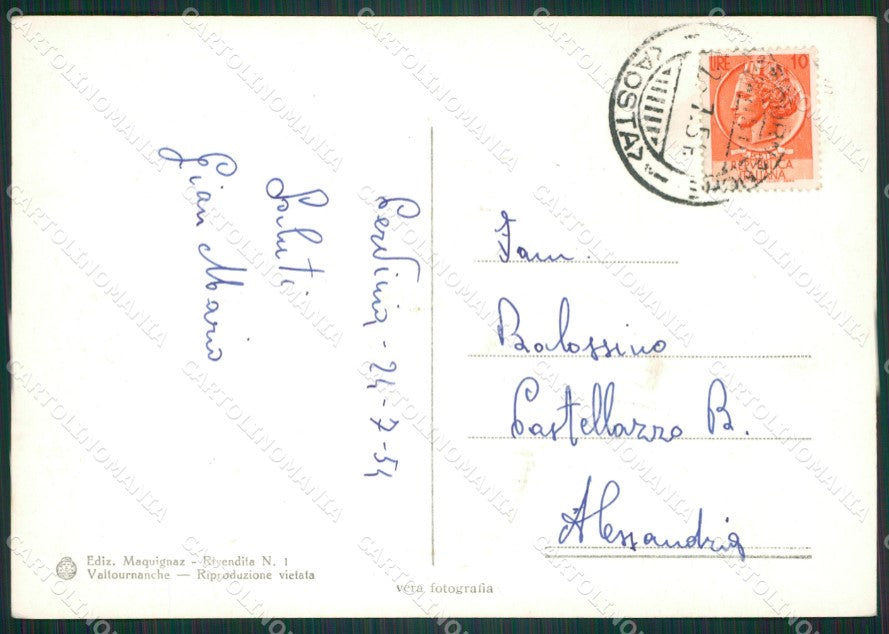 Cervinia - 24-7-54
Saluti
Gian Mario
Fam.
Balossino
Castellazzo B.
Alessandria
LIRE 10
REPVBBLICA
ITALIANA
(AOSTA)
Ediz. Maquignaz - Rivendita N. 1
Valtournanche — Riproduzione vietata
vera fotografia
CARTOLINOMANIA